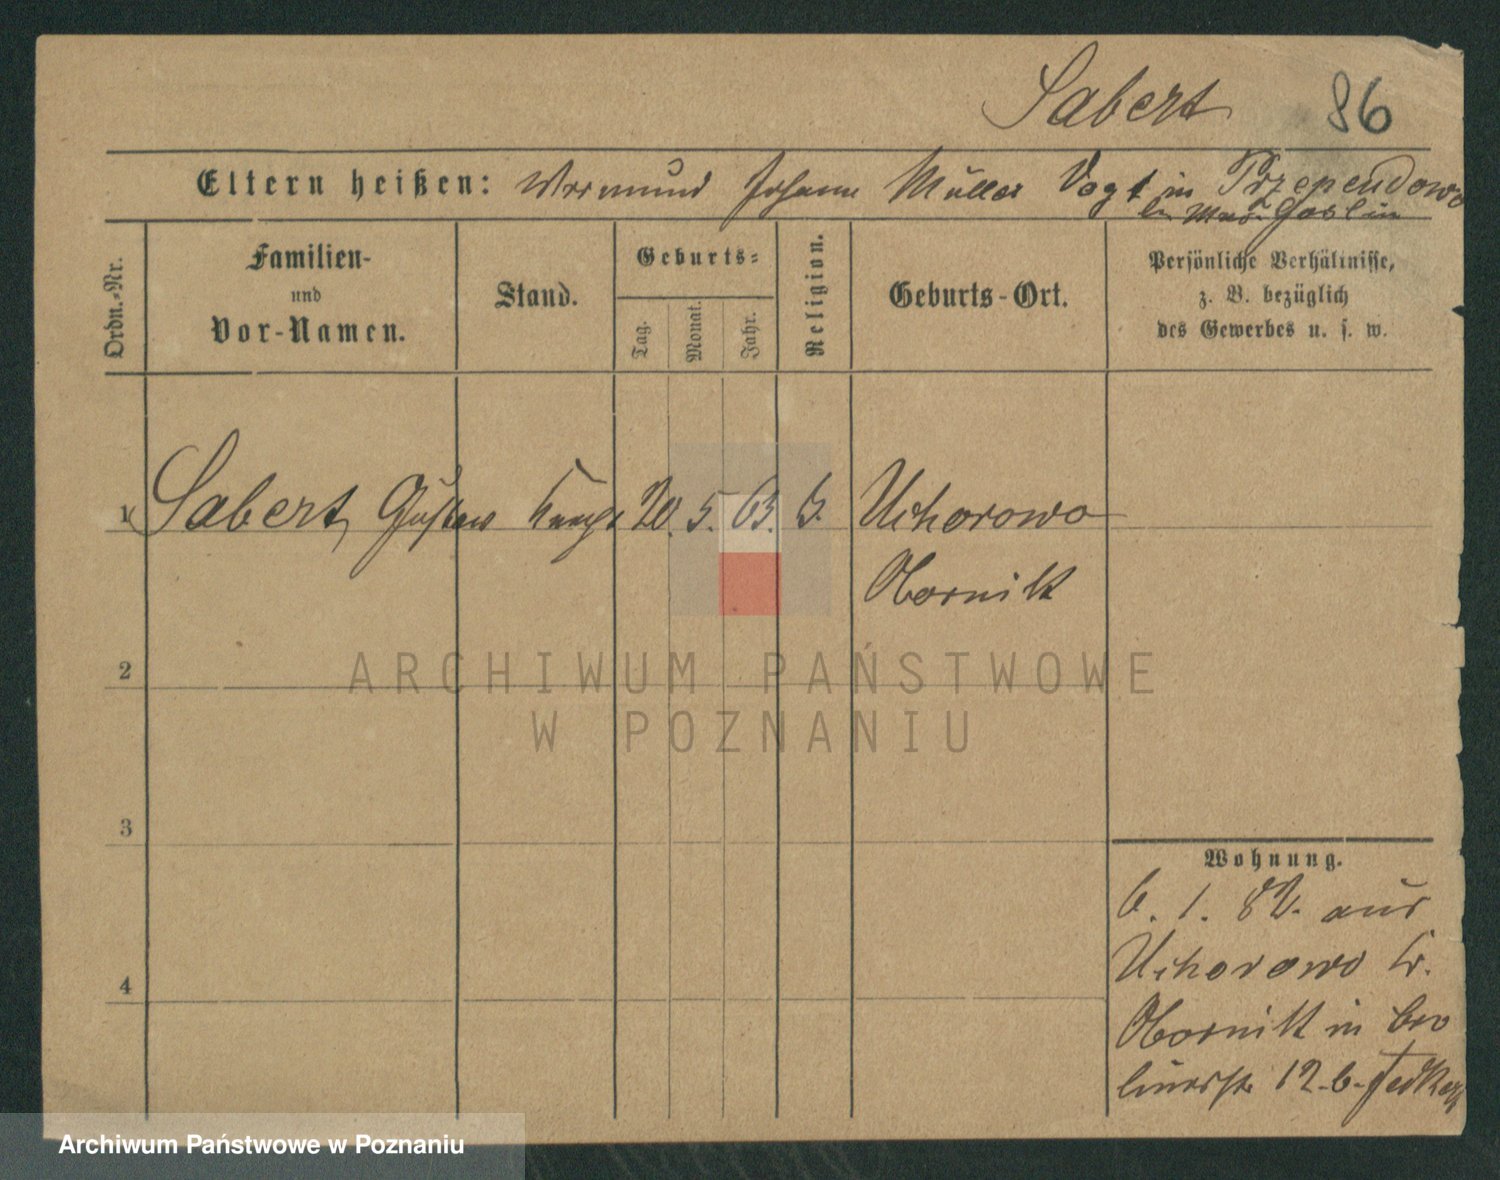 Sabert 86
Eltern heißen: Vormund Johann Müller Vogt in Przependowo
b. Mur. Goslin
Ordn.-Nr.
Familien-
und
Vor-Namen.
Stand.
Geburts-
Tag.
Monat.
Jahr.
Religion.
Geburts-Ort.
Persönliche Verhältnisse,
z. B. bezüglich
des Gewerbes u. s. w.
1 Sabert, Gustav Knecht 20. 5. 63. Uchorowo
Obornik
2
3
4
Wohnung.
6. 1. 82. aus
Uchorowo Kr.
Obornik in
12. b.
ARCHIWUM PAŃSTWOWE
W POZNANIU
Archiwum Państwowe w Poznaniu